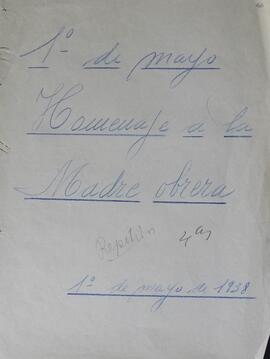 1º de mayo
Homenaje a la
Madre obrera
4as
1º de mayo de 1938